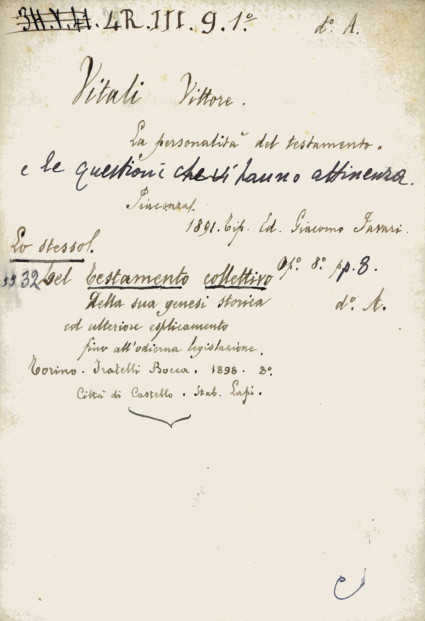 4R.III.9.1º dº. A.
Vitali Vittore.
La personalità del testamento.
e le questioni che vi hanno attinenza.
Piacenza.
1891. Tip. Ed. Giacomo Favari.
Lo stesso.
32 Del testamento collettivo Opº. 8º. pp. 8.
Della sua genesi storica dº. A.
ed ulteriore esplicamento
fino all'odierna legislazione.
Torino. Fratelli Bocca. 1898. 8º.
Città di Castello. Stab. Lapi.